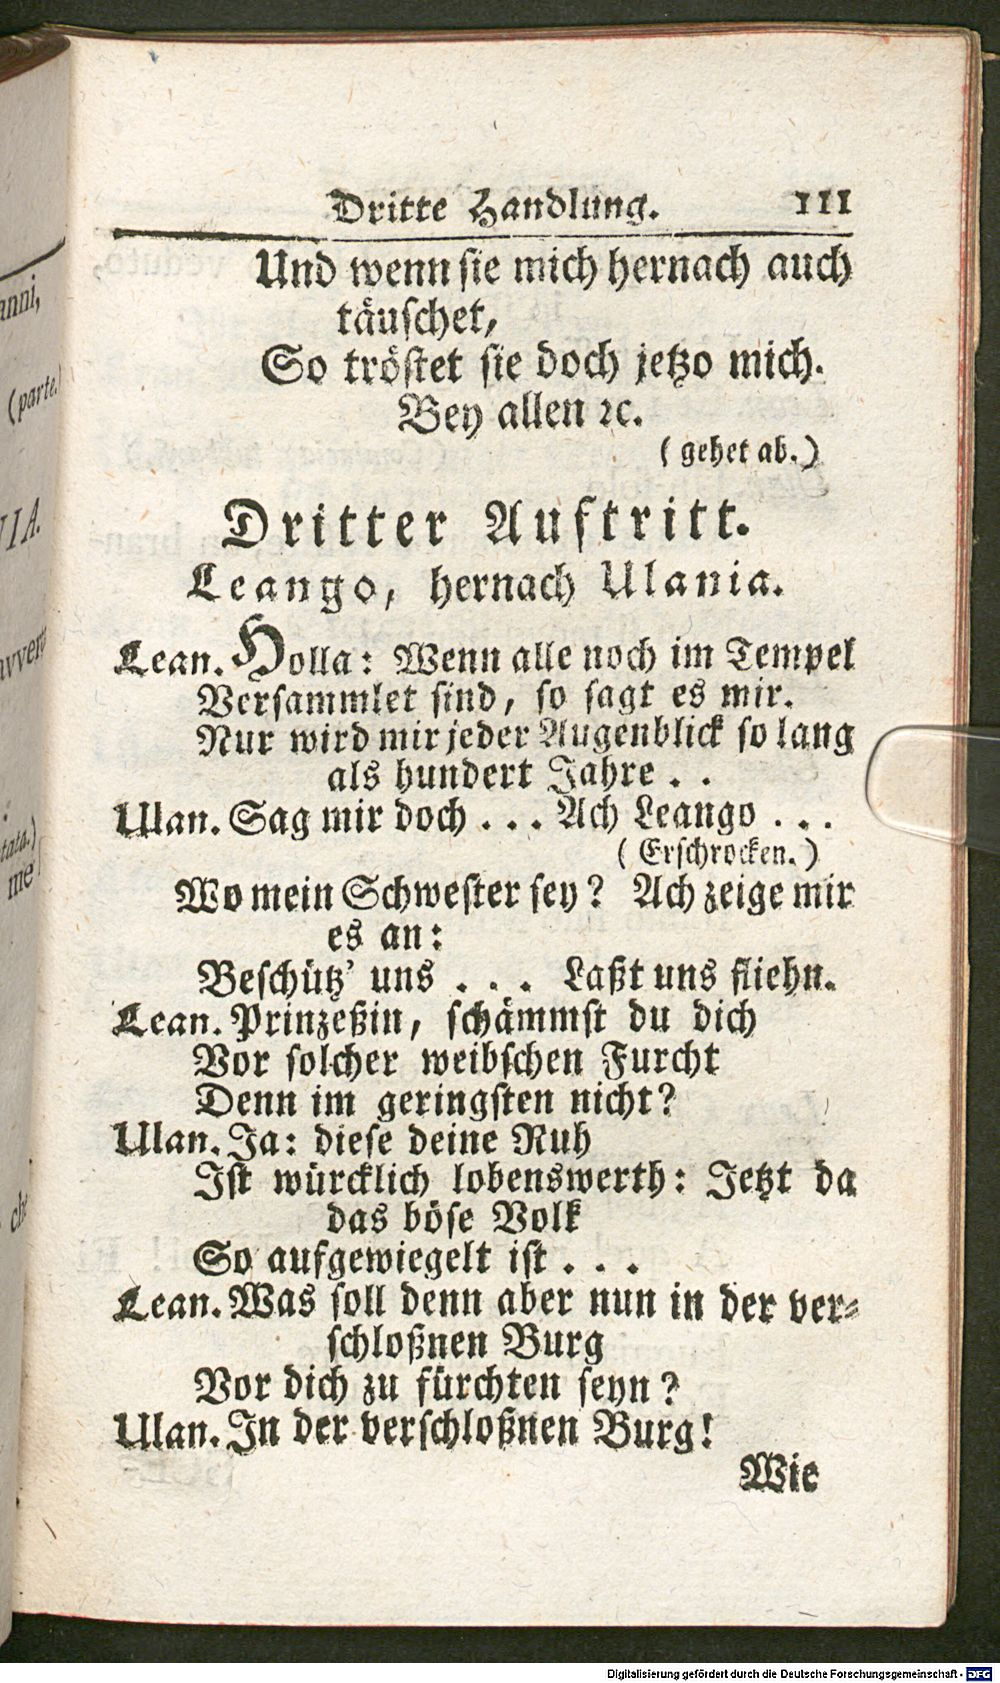 Dritte Handlung. 111
Und wenn sie mich hernach auch
täuschet,
So tröstet sie doch jetzo mich.
Bey allen ꝛc.
( gehet ab.)
Dritter Auftritt.
Leango, hernach Ulania.
Lean. Holla: Wenn alle noch im Tempel
Versammlet sind, so sagt es mir.
Nur wird mir jeder Augenblick so lang
als hundert Jahre . .
Ulan. Sag mir doch . . . Ach Leango . . .
( Erschrocken. )
Wo mein Schwester sey? Ach zeige mir
es an:
Beschütz' uns . . . Laßt uns fliehn.
Lean. Prinzeßin, schämmst du dich
Vor solcher weibschen Furcht
Denn im geringsten nicht?
Ulan. Ja: diese deine Ruh
Ist würcklich lobenswerth: Jetzt da
das böse Volk
So aufgewiegelt ist . . .
Lean. Was soll denn aber nun in der ver-
schloßnen Burg
Vor dich zu fürchten seyn?
Ulan. In der verschloßnen Burg!
Wie
anni,
(parte.)
che
Digitalisierung gefördert durch die Deutsche Forschungsgemeinschaft - DFG